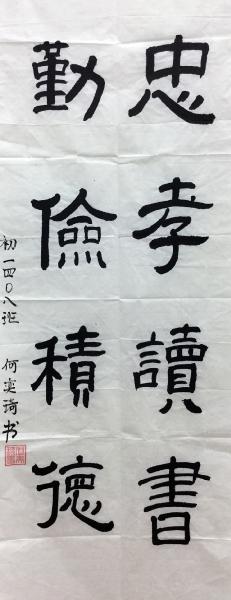 忠孝讀書
勤儉積德
初一四〇八班 何奕琦书